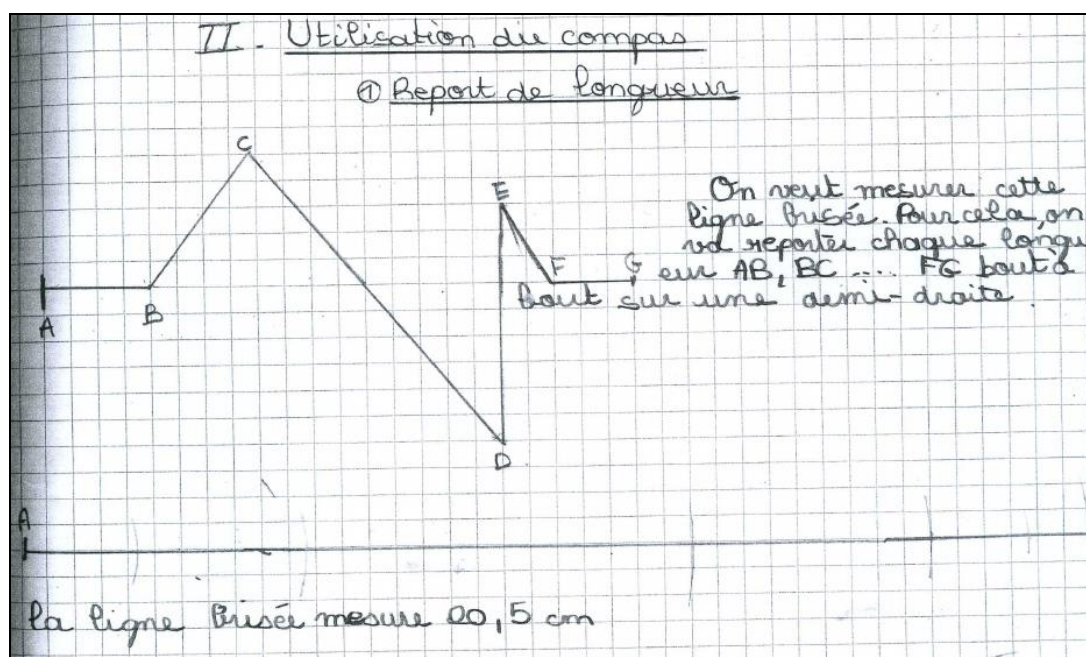 II. Utilisation du compas
① Report de longueur
C
E
On veut mesurer cette
ligne brisée. Pour cela, on
va reporter chaque longu
F G eur AB, BC .... FG bout à
A B bout sur une demi-droite.
D
A
la ligne brisée mesure 20,5 cm